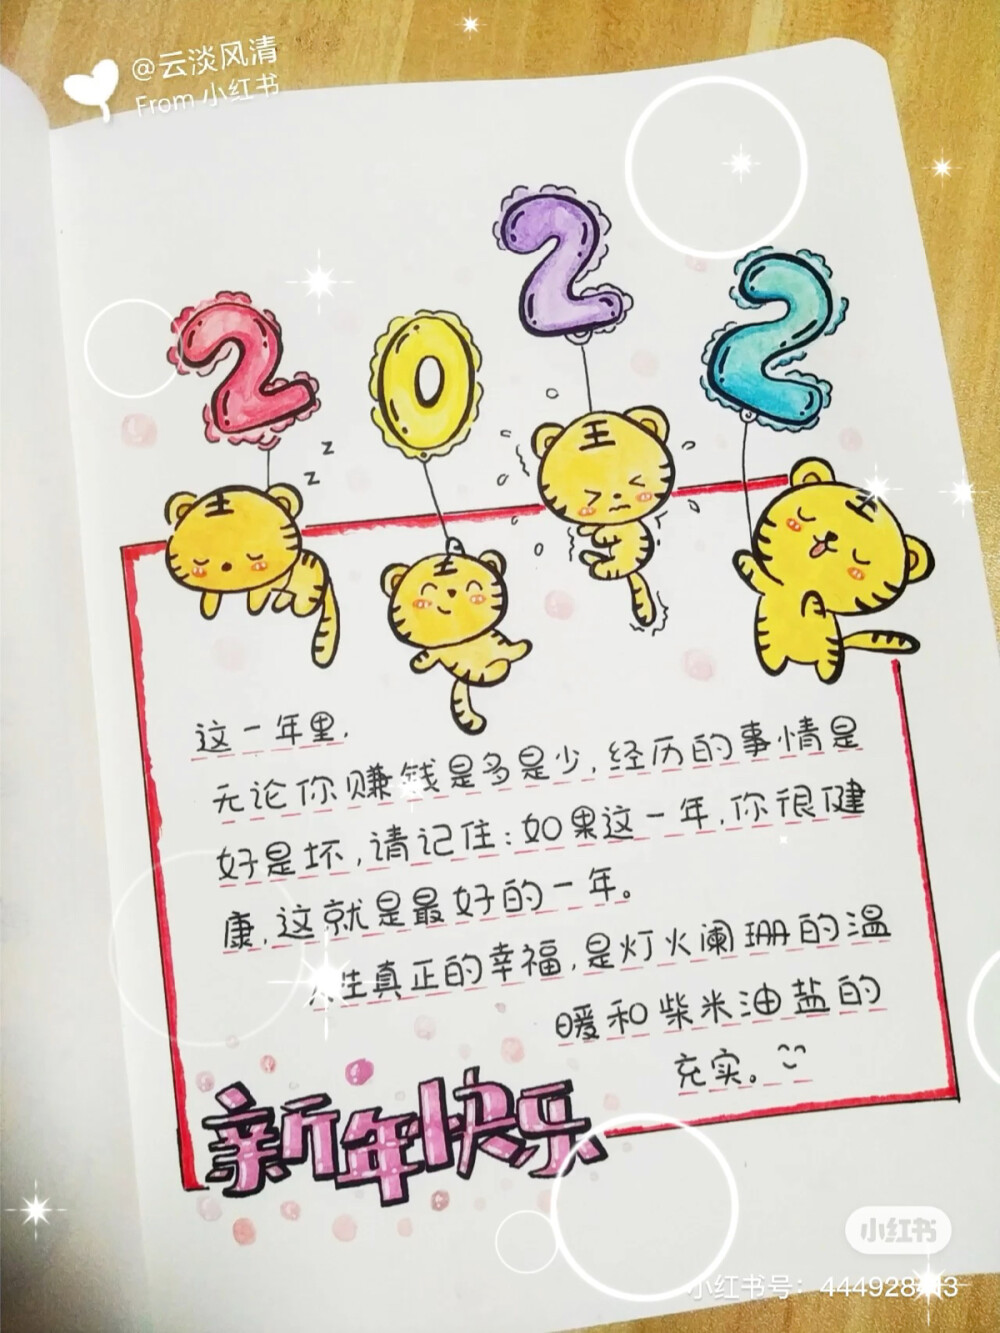 @云淡风清
From 小红书
2022
z
z
王
王
王
王
这一年里，
无论你赚钱是多是少，经历的事情是
好是坏，请记住：如果这一年，你很健
康，这就是最好的一年。
人生真正的幸福，是灯火阑珊的温
暖和柴米油盐的
充实。
新年快乐
小红书
小红书号：444928